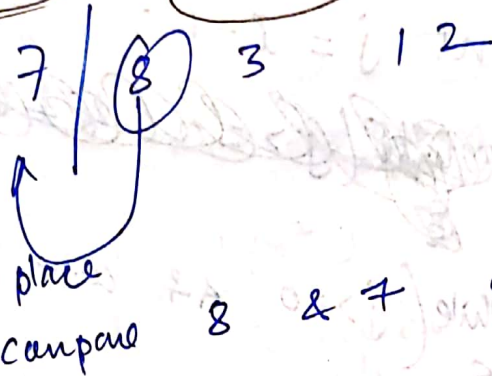 7 | 8 3 1 2
place
compare 8 & 7